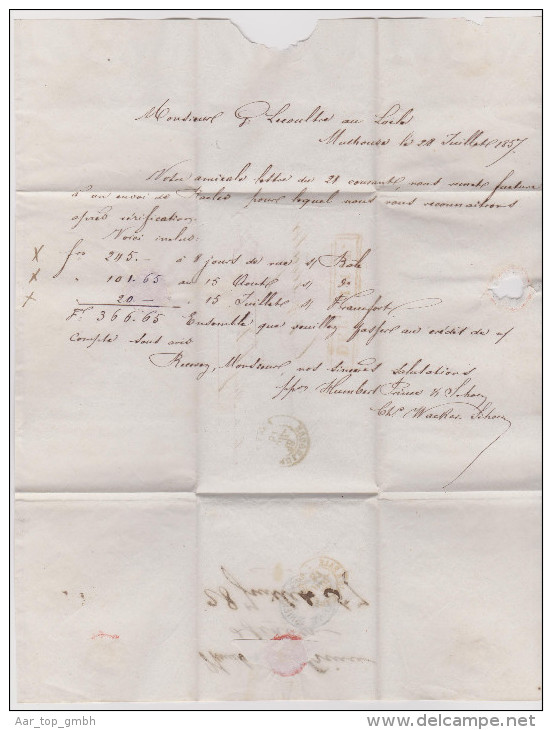 Monsieur G. Lecoultre au Locle
Mulhouse le 28 Juillet 1857.
Votre amicale lettre du 21 courant, nous remet facture
à un envoi de pour lequel nous vous reconnaissons
après vérification.
Voici inclus:
X frs 245.- à 8 jours de vue s/ Bâle
X " 101.65 au 15 Août s/ do
X " 20.- " 15 Juillet s/ Francfort
Fs 366.65 Ensemble que veuillez passer au crédit de n/
compte sauf avis
Recevez, Monsieur, nos sincères salutations
ppon Humbert Prince &
Chs
28 Juillet 57
Aar_top_gmbh
www.delcampe.net